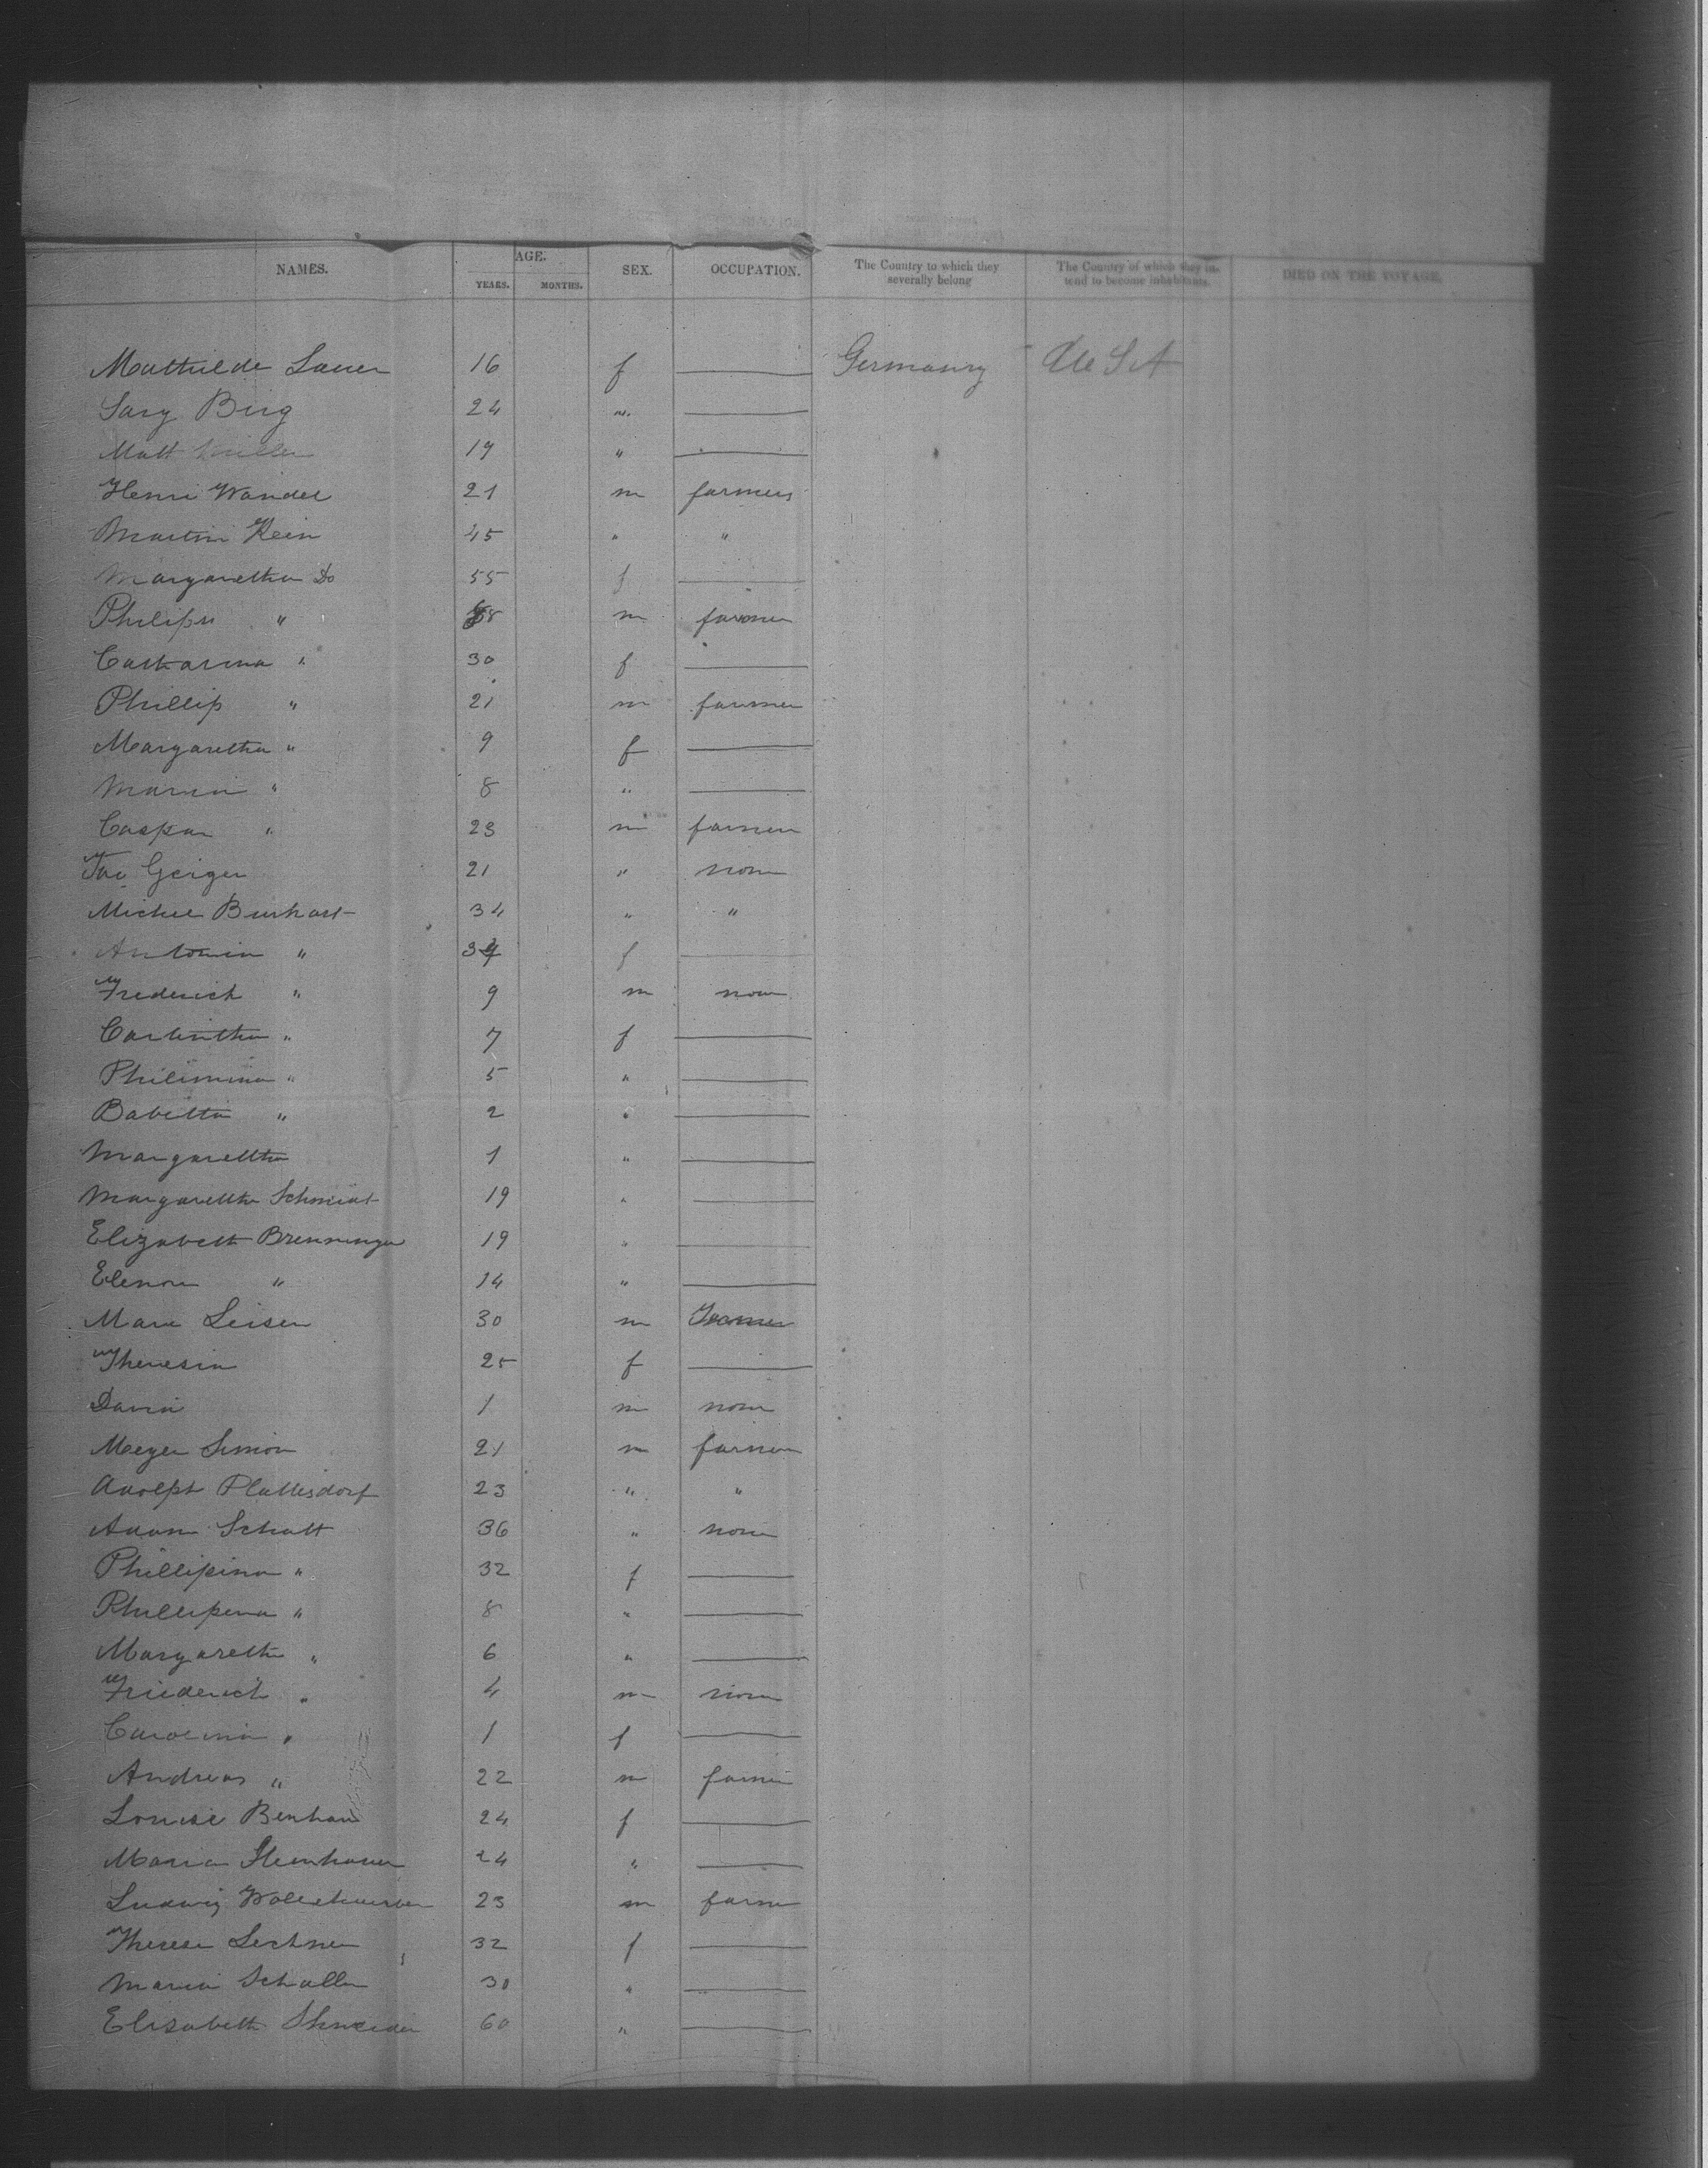 NAMES. AGE. YEARS. MONTHS. SEX. OCCUPATION. The Country to which they severally belong The Country of which they intend to become inhabitants. DIED ON THE VOYAGE.
Mathilde Lauer 16 f — Germany U S A
Sary Birg 24 " —
Matt Miller 19 " —
Henri Wandel 21 m farmers
Martin Kein 45 " "
Margaretha Do 55 f —
Philipp " m farmer
Catharina " 30 f —
Phillip " 21 m farmer
Margaretha " 9 f —
Maria " 8 " —
Caspar " 23 m farmer
Geiger 21 " none
Michel Burkart 34 " "
Antonia " f —
Frederich " 9 m none
" 7 f —
Philimina " 5 " —
Babetta " 2 " —
Margaretha 1 " —
Margaretha Schmidt 19 " —
Elizabeth Brenninger 19 " —
Elenore " 14 " —
Marc Leiser 30 m
Theresia 25 f —
David 1 m none
Meyer Simon 21 m farmer
Adolph 23 " "
Adam Schatt 36 " none
Phillipina " 32 f —
Phillipina " 8 " —
Margaretha " 6 " —
Friederich " 4 m none
Carolina " 1 f —
Andreas " 22 m farmer
Louise 24 f —
Maria 24 " —
Ludwig 23 m farmer
Therese Lechner 32 f —
Maria Schaller 30 " —
Elisabeth Shneider 60 " —